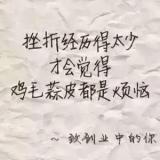 挫折经历得太少
才会觉得
鸡毛蒜皮都是烦恼
~致创业中的你